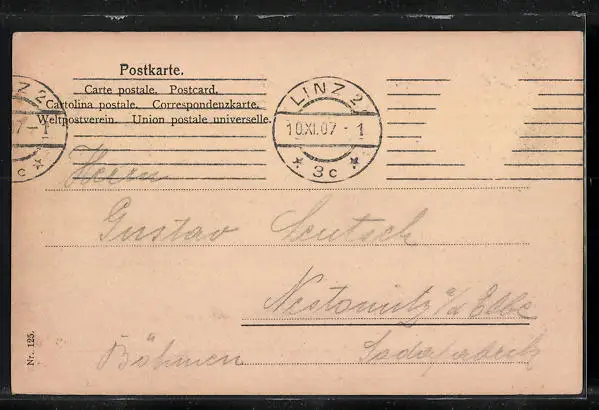 Postkarte.
Carte postale. Postcard.
Cartolina postale. Correspondenzkarte.
Weltpostverein. Union postale universelle.
Z 2
07-1
c *
LINZ 2
10.XI.07 - 1
* 3c *
Herrn
Gustav Deutsch
Nestomitz a/d Elbe
Böhmen Sodafabrik
Nr. 125.